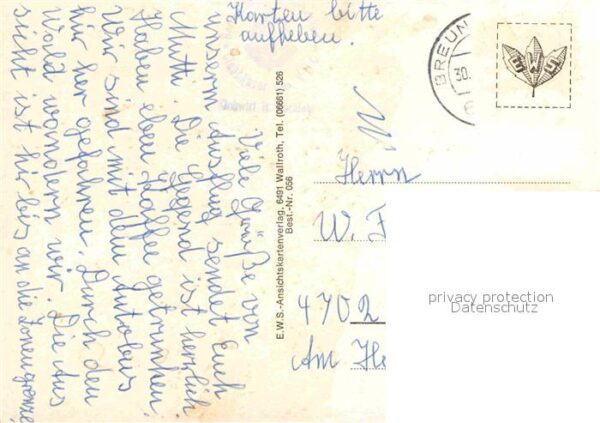 Karten bitte
aufheben.
Viele Grüße von
unserm Ausflug sendet Euch
Mutti. Die Gegend ist herrlich
Haben eben Kaffee getrunken.
Wir sind mit dem Autobus
hier her gefahren. Durch den
Wald wandern wir. Die Aus
sicht ist hir bis an die Zonengrenze
E.W.S.-Ansichtskartenverlag, 6491 Wallroth, Tel. (06661) 526
Best.-Nr. 056
BREUN
30.
6
Herrn
W. F
4702
Am He
privacy protection
Datenschutz